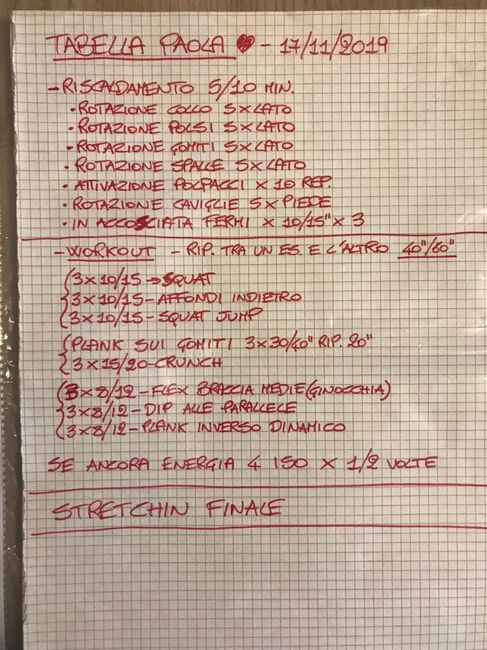 TABELLA PAOLA ♥ - 17/11/2019
- RISCALDAMENTO 5/10 MIN.
• ROTAZIONE COLLO 5×LATO
• ROTAZIONE POLSI 5×LATO
• ROTAZIONE GOMITI 5×LATO
• ROTAZIONE SPALLE 5×LATO
• ATTIVAZIONE POLPACCI × 10 REP.
• ROTAZIONE CAVIGLIE 5×PIEDE
• IN ACCOSCIATA FERMI × 10/15" × 3
- WORKOUT - RIP. TRA UN ES. E L'ALTRO 40"/60"
3×10/15 → SQUAT
3×10/15 - AFFONDI INDIETRO
3×10/15 - SQUAT JUMP
PLANK SUI GOMITI 3×30/40" RIP. 20"
3×15/20 - CRUNCH
3×8/12 - FLEX BRACCIA MEDIE (GINOCCHIA)
3×8/12 - DIP ALLE PARALLELE
3×8/12 - PLANK INVERSO DINAMICO
SE ANCORA ENERGIA 4 ISO × 1/2 VOLTE
STRETCHIN FINALE